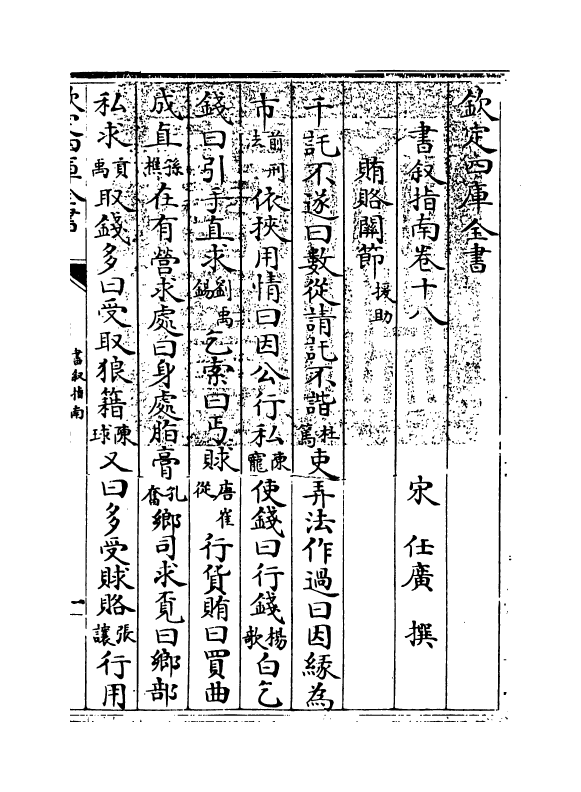 欽定四庫全書
書叙指南卷十八　宋　任廣　撰
賄賂關節援助
千託不遂曰數從請託不諧杜篤吏弄法作過曰因緣為
市前刑法依挾用情曰因公行私陳寵使錢曰行錢楊歌白乞
錢曰引手直求劉禹錫乞索曰丐賕唐崔從行貨賄曰買曲
成直孫樵在有營求處曰身處脂膏孔奮鄉司求覔曰鄉部
私求貢禹取錢多曰受取狼籍陳球又曰多受賕賂張讓行用
書叙指南
一